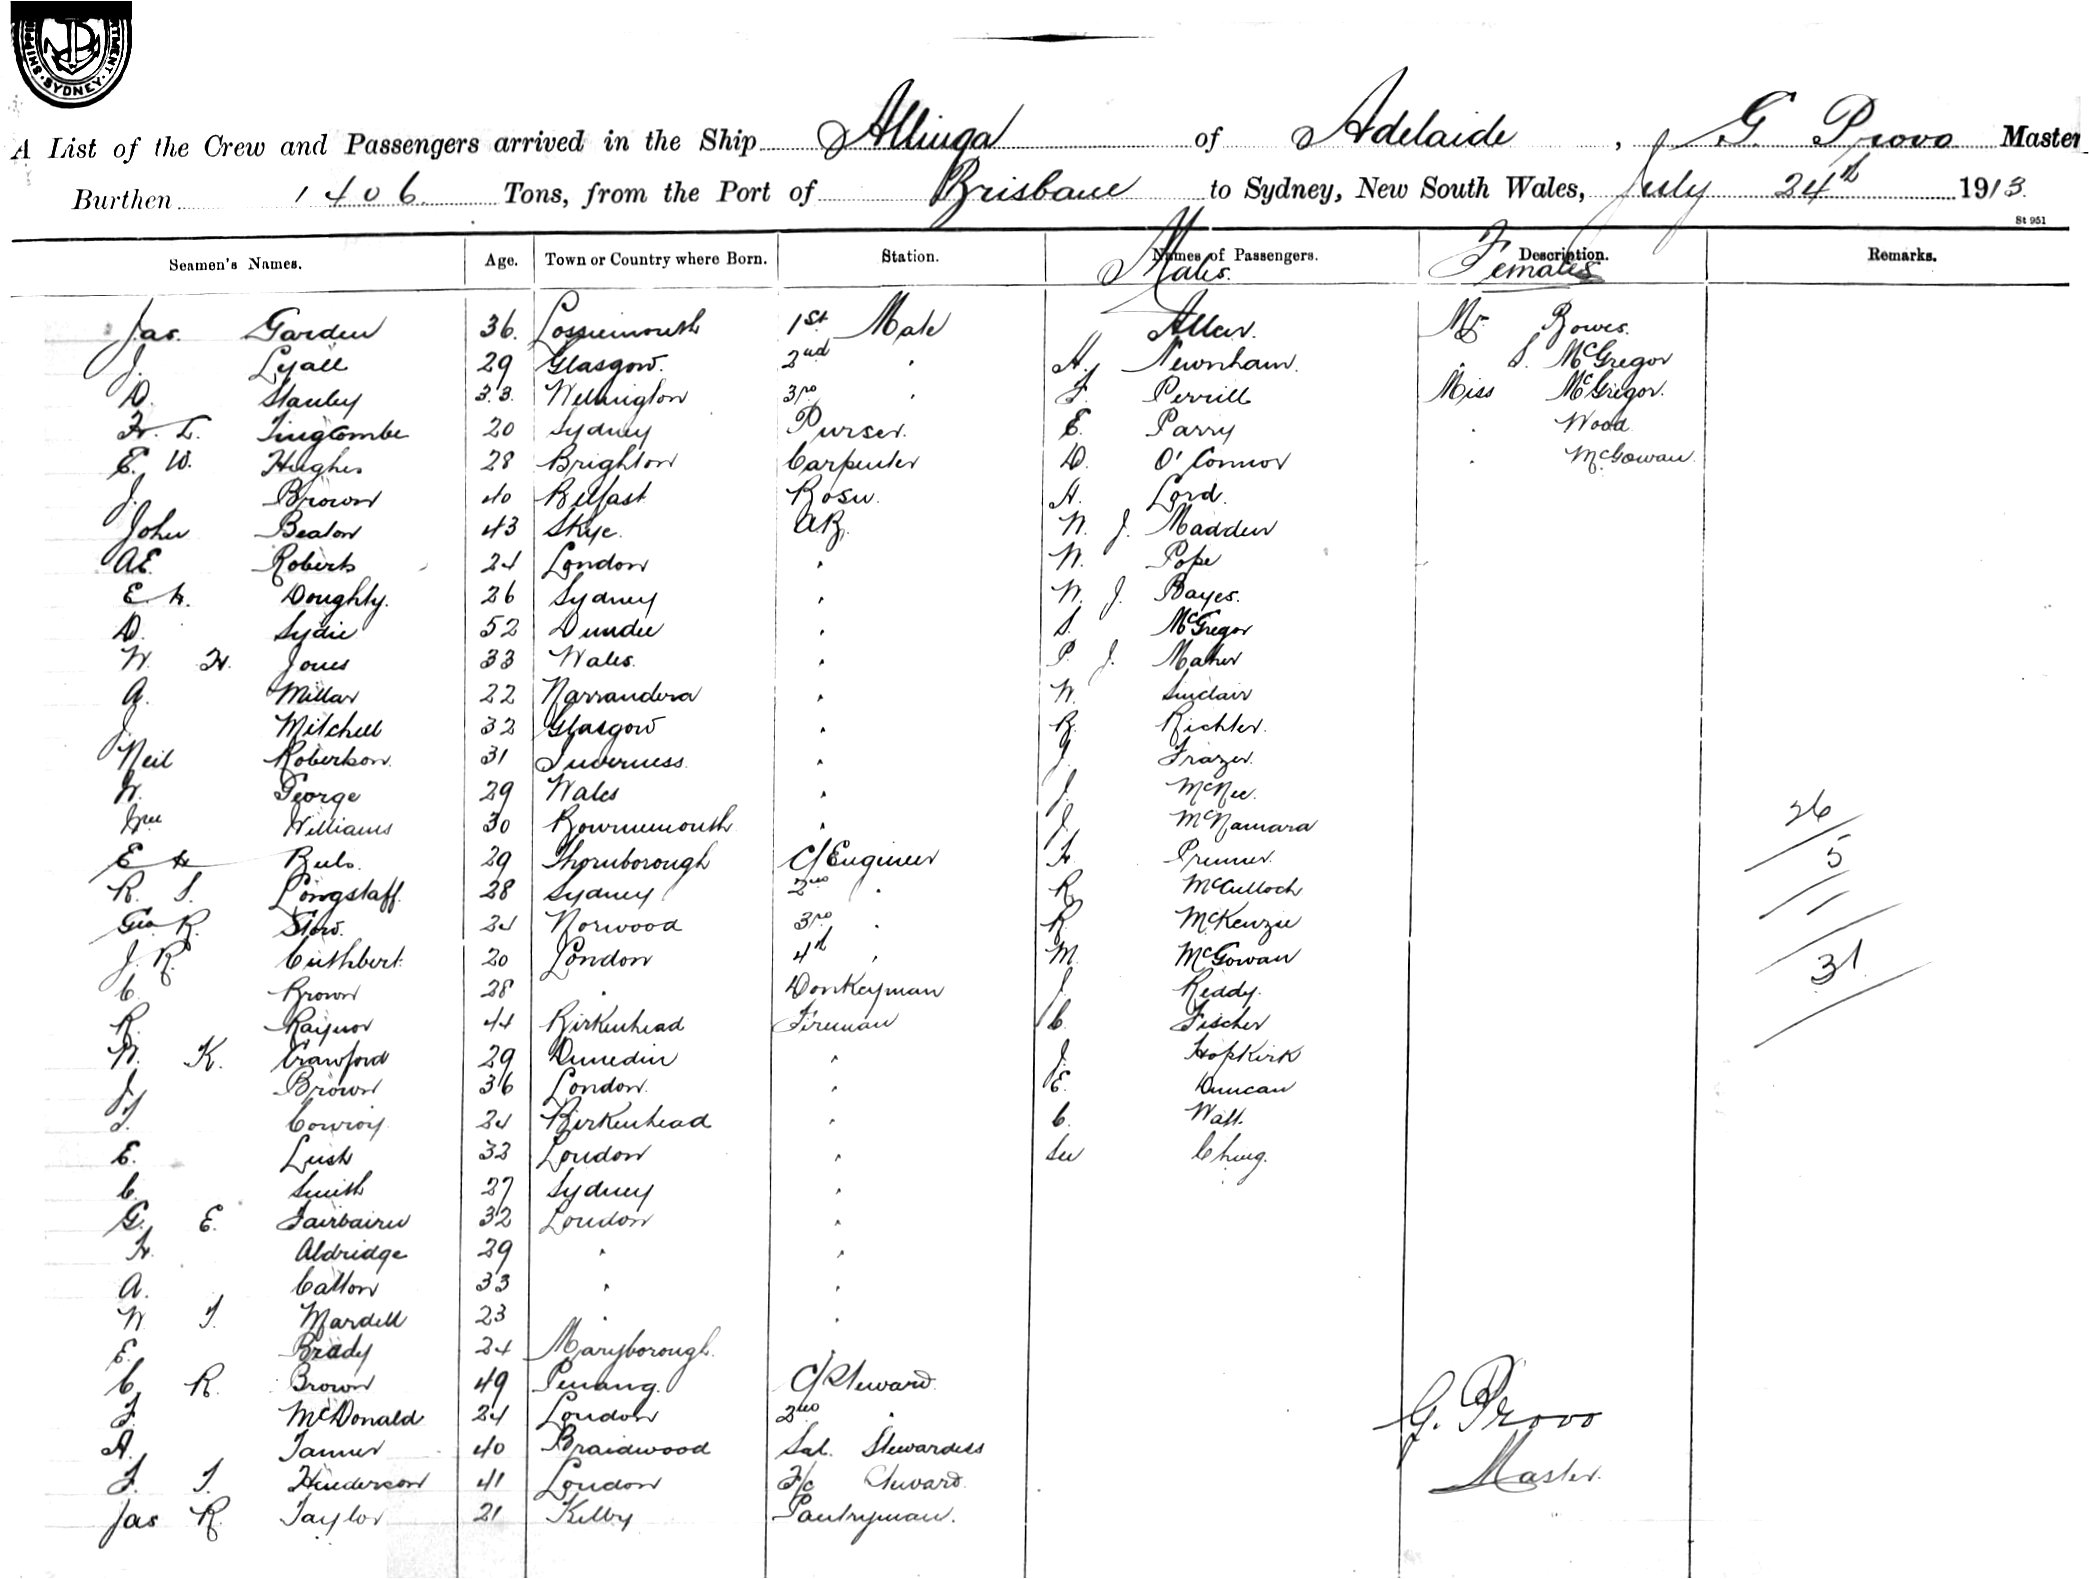 SHIPPING DEPARTMENT. SYDNEY
A List of the Crew and Passengers arrived in the Ship Allinga of Adelaide, G. Provo Master
Burthen 1406 Tons, from the Port of Brisbane to Sydney, New South Wales, July 24th 1913.
St 951
Seamen's Names. Age. Town or Country where Born. Station. Names of Passengers. Description. Remarks.
Males. Females
Jas. Garden 36. Lossiemouth 1st Mate Allan. Mrs Bowes.
J. Lyall 29 Glasgow. 2nd " H. Newnham. " S. McGregor
D. Stanley 33. Wellington 3rd " F. Perrill Miss McGregor.
H. L. Tingcombe 20 Sydney Purser. E. Parry " Wood
E. W. Hughes 28 Brighton Carpenter D. O'Connor " McGowan.
J. Brown 40 Belfast Bosn. A. Lord.
John Beaton 43 Skye. A.B. W. J. Madden
A.E. Roberts 24 London " W. Pope
E. H. Doughty. 26 Sydney " W. J. Bayes.
D. Lydie 52 Dundee " S. McGregor
W. H. Jones 33 Wales. " P. J. Maher
A. Millar 22 Narrandera " W. Sinclair
J. Mitchell 32 Glasgow " B. Richter.
Neil Robertson. 31 Inverness. " J. Frazer.
W. George 29 Wales " J. McNee.
Wm Williams 30 Bournemouth " J. McNamara
E H 29 Thornborough C/Engineer H. 26
R. S. Longstaff. 28 Sydney 2nd " R. McCulloch 5
Geo. R. Stow. 24 Norwood 3rd " R. McKenzie
J. R. Cuthbert. 20 London 4th " M. McGowan 31
C. Brown 28 " Donkeyman J. Reddy.
R. Raynor 44 Birkenhead Fireman C. Fischer
W. K. Crawford 29 Dunedin " J. Hopkirk
J. Brown 36 London. " E. Duncan
T. Conroy. 24 Birkenhead " C. Watt.
E. Lush 33 London " See Ching.
C. Smith 27 Sydney "
G. E. Fairbairn 32 London "
H. Aldridge 29 " "
A. Catton 33 " "
W. T. Mardell 23 " "
E. Brady 24 Maryborough. "
C. R. Brown 49 Penang. C/Steward.
F. McDonald 24 London 2nd "
A. Tanner 40 Braidwood Sal. Stewardess
F. T. Henderson 41 London F/c Steward.
Jas R. Taylor 21 Pantryman.
G. Provo
Master.